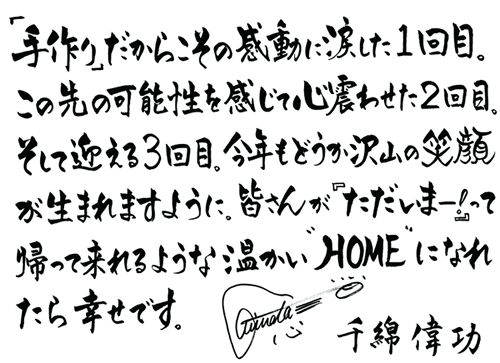 「手作り」だからこその感動に涙した1回目。
この先の可能性を感じて心震わせた2回目。
そして迎える3回目。今年もどうか沢山の笑顔
が生まれますように。皆さんが『ただいまー!』って
帰って来れるような温かい"HOME"になれ
たら幸せです。
心
千綿偉功